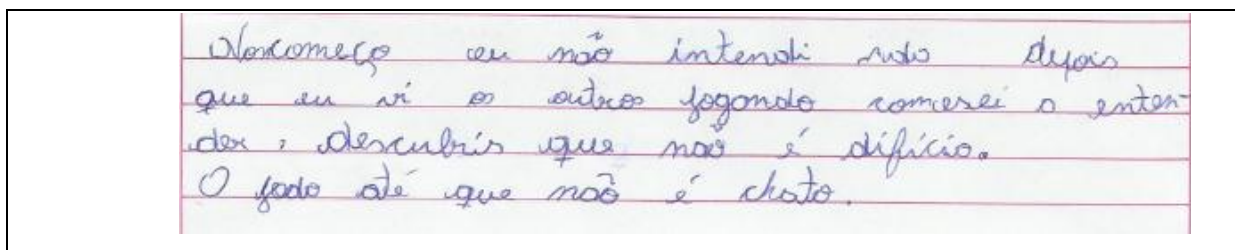 No começo eu não intendi nada depois
que eu vi os outros jogando comesei a enten-
der, descubris que não é difício.
O jodo até que não é chato.